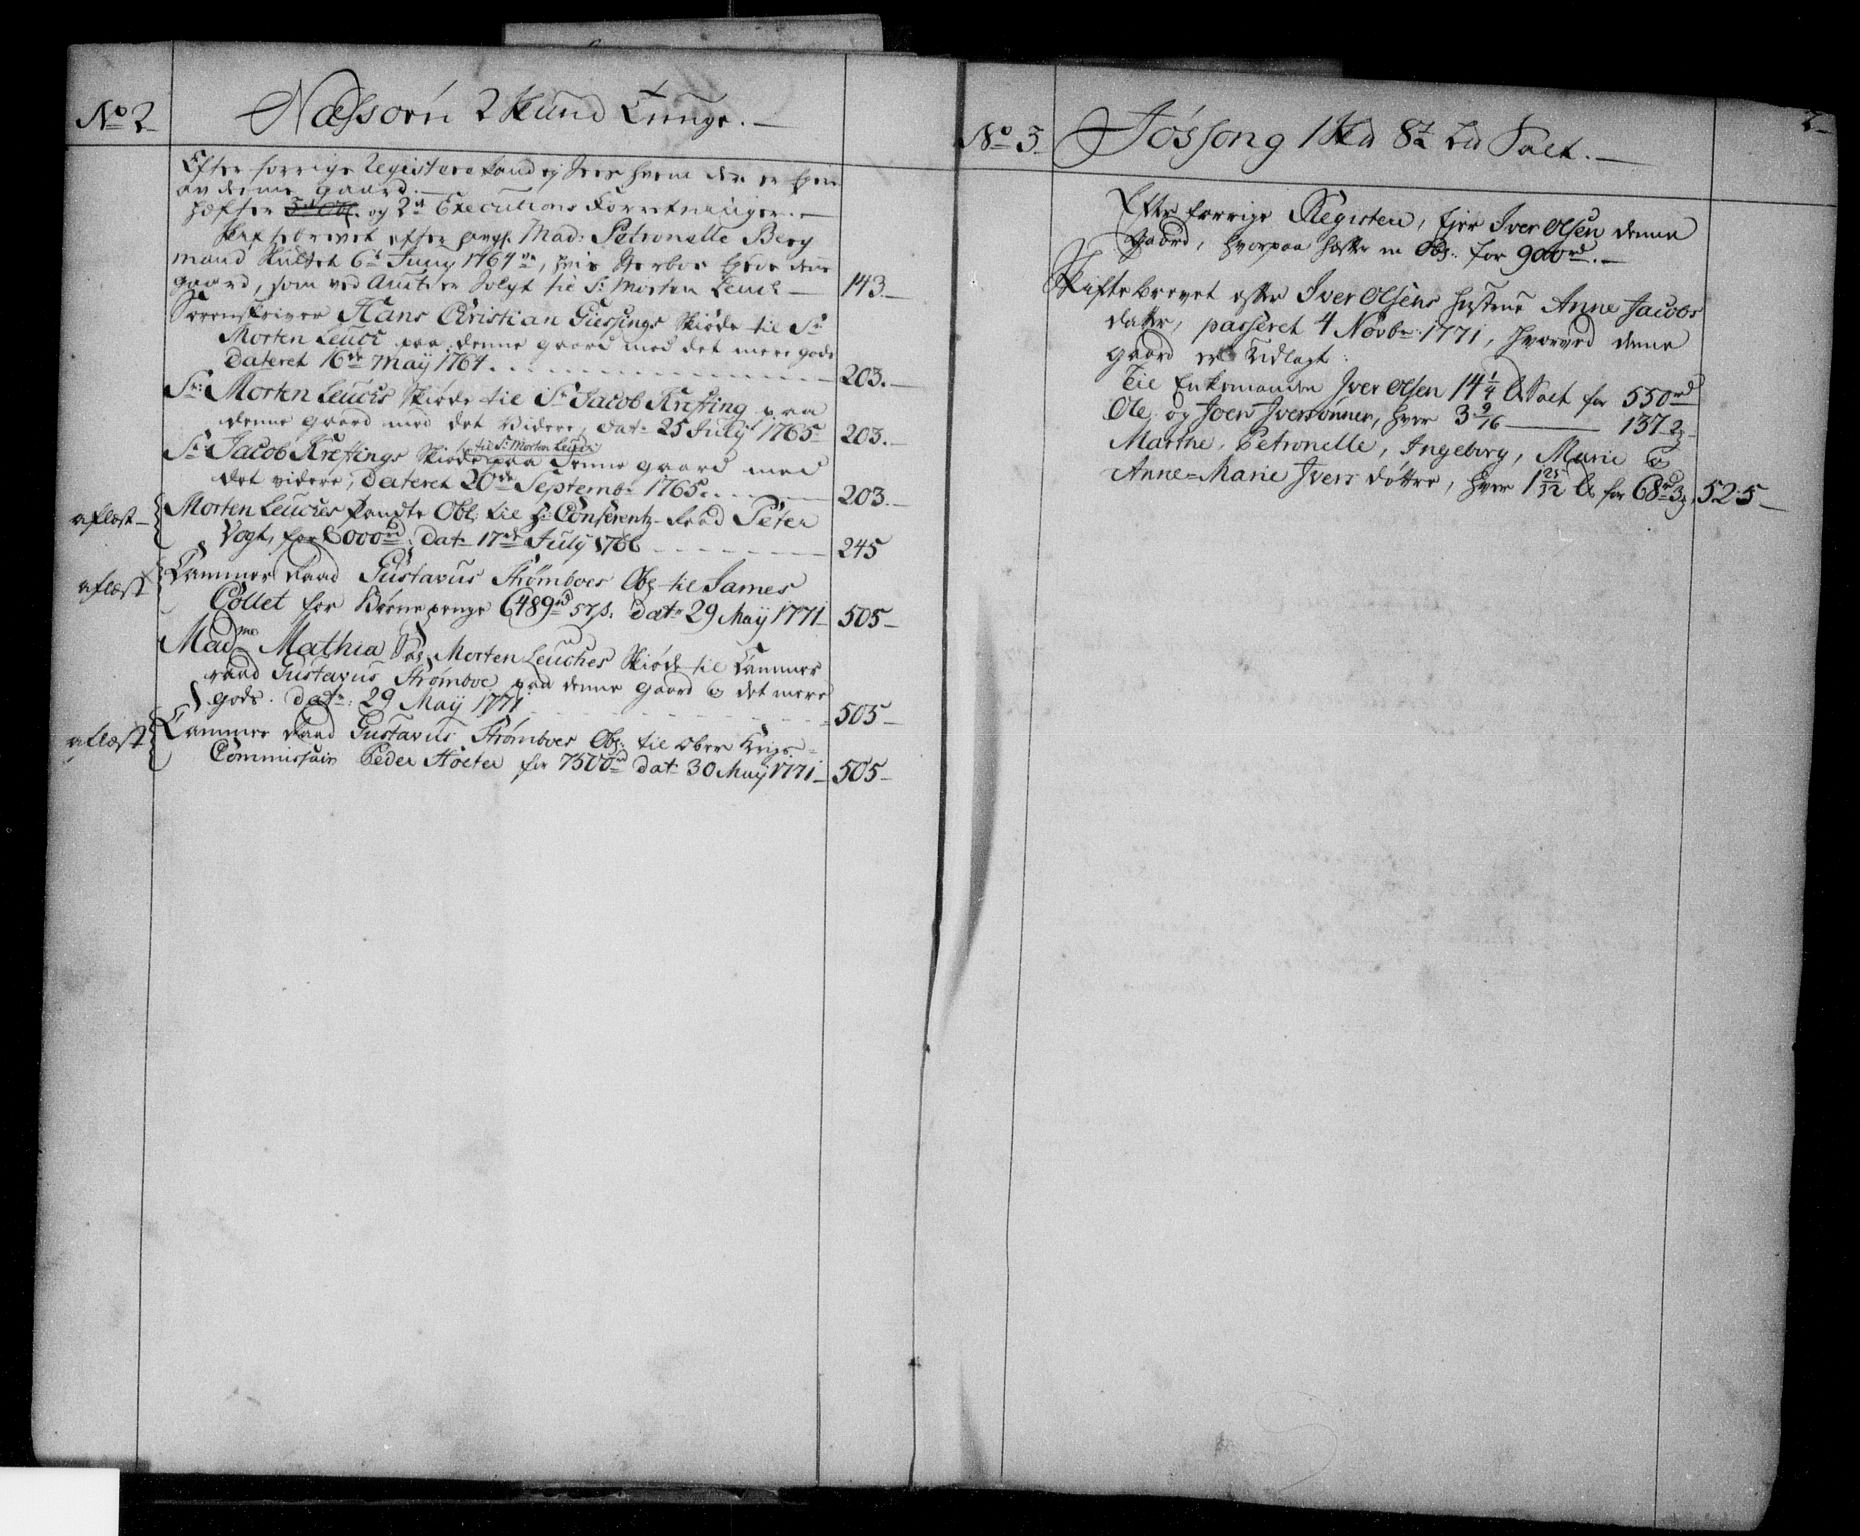 No 2
Næssoen 2 Hund Tunge.
Efter forrige Registere kand ej sees hvem der er Ejere
av denne gaard.
hæfter og 2de Executions Forretninger.
Skiftebrevet efter Mad: Petronelle Berg
mand sluttet 6t Juny 1764, hvis Sterboe Ejede denne
gaard, som ved Auct. er Solgt til Sr Morten Leuch 143
Sorenskriver Hans Christian Giessings Skiøde til Sr
Morten Leuch paa denne gaard med det mere gods
Dateret 16de May 1764. 203.
Sr: Morten Leuchs Skiøde til Sr Jacob Krefting paa
denne gaard med det Videre, dat: 25 July 1765 203.
til Sr Morten Leuch
Sr Jacob Kreftings Skiøde paa denne gaard med
det videre, Dateret 20de Septembr 1765. 203.
aflæst
Morten Leuches Pandte Obl: til Hr: Conferentz-Raad Peter
Vogt, for 8000rd: Dat: 17de July 1766 245
aflæst
Cammer Raad Gustavus Strømboes Obl: til James
Collet for Børnepenge 6489rd 57s. Dat: 29 May 1771 505
Madme Mathia Sal. Morten Leuches Skiøde til Cammer
raad Gustavus Strømboe paa denne gaard og det mere
gods. dat: 29 May 1771 505
aflæst
Cammer Raad Gustavus Strømboes Obl: til Ober Krigs-
Commissair Peder Hoeter for 7500rd dat: 30 May 1771 505
2
No 3
Jøssong 1 Hd 8½ Ld Salt.
Efter forrige Registere, Ejer Iver Olsen denne
Gaard, hvorpaa hæfter en Obl: for 900rd.
Skiftebrevet efter Iver Olsens Hustrue Anne Jacobs
datter, passeret 4 Novbr: 1771, hvorved denne
gaard er Udlagt:
Til Enkemanden Iver Olsen 14¼ Salt for 550rd
Ole og Joen Iversønner, hver 3 9/16 137 2
Marthe, Petronelle, Ingeborg, Marie og
Anne-Marie Ivers døttre, hver 1 25/32 for 68rd 3 525